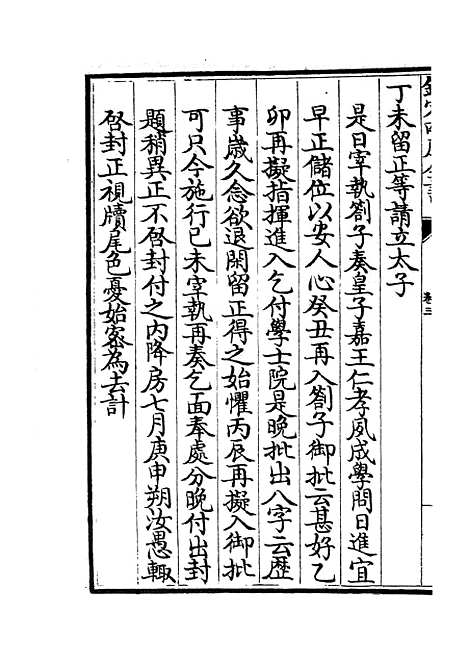 欽定四庫全書
卷三
丁未留正等請立太子
是日宰執劄子奏皇子嘉王仁孝夙成學問日進宜
早正儲位以安人心癸丑再入劄子御批云甚好乙
卯再擬指揮進入乞付學士院是晚批出八字云歷
事歲久念欲退閑留正得之始懼丙辰再擬入御批
可只今施行己未宰執再奏乞面奉處分晚付出封
題稍異正不啓封付之内降房七月庚申朔汝愚輙
啓封正視牘尾色憂始密為去計